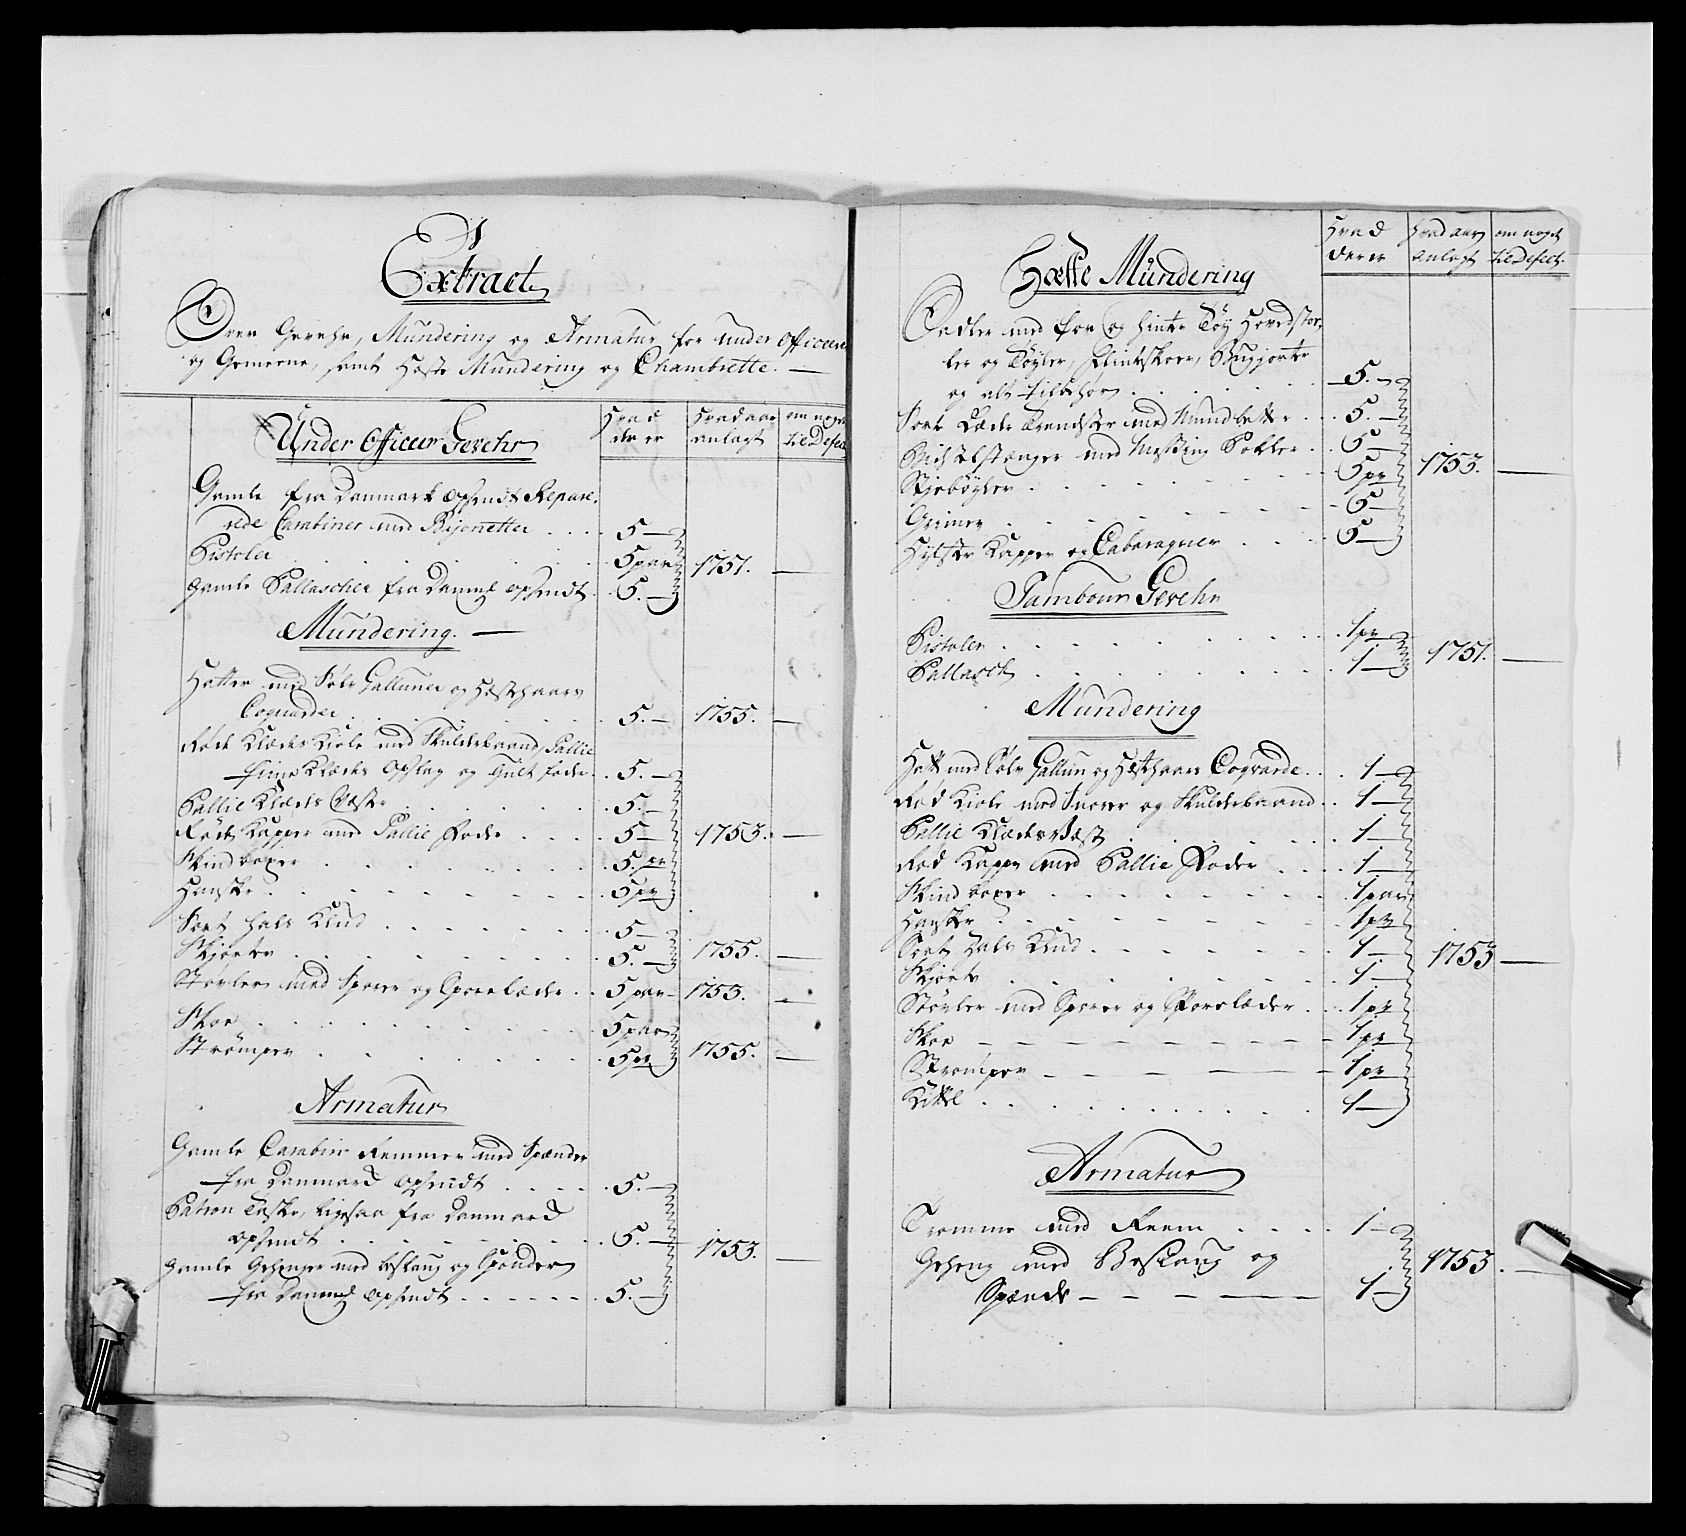 Extract
Over Gevehr, Mundering og Armatur for under Officerer
og Gemeene, samt Heste Mundering og Chambrette. —
Under Officeer Gevehr
Hvad der er
Hvad aar anlagt
om noget til Defect
Gamle fra Danmark opsendt Repare-
rede Carabiner med Bajonetter .... 5 —
Pistoler . . . . 5 par 1751. —
gamle Pallascher fra Danm: opsendt. 5. —
Mundering. —
Hatter med Sølv Galluner og Hæsthaars
Coquarder . . . . 5. — 1755. —
Røde Klædes Kiole med Skulderbaand, Pallie
fiine Klædes Opslag og Gult foder. 5. —
Pallie Klædes Væste . . . . 5. —
Røde Kapper med Pallie Foder . . . . 5 — 1753. —
Skind boxer . . . . 5. pr
Hanske . . . . 5 pr
Sort Hals Klud . . . . 5 —
Skjorter . . . . 5. — 1755. —
Støvler med Sporer og Sporelæder . . 5 par 1753. —
Skoe . . . . 5 par
Strømper . . . . 5 pr 1755. —
Armatur
Gamle Carabin Remmer med Spænder
fra Danmard opsendt . . . . 5. —
Patron Taske, ligesaa fra Danmard
opsendt . . . . 5. — 1753. —
gamle Gehenger med beslaug og Spænder
fra Danm: opsendt . . . . 5. —
Hvad der er
Hvad aar anlagt
om noget til Defect.
Hæste Mundering
Sadler med for og hinter Tøy Hovedstol-
ler og Tøyler, Flintskoer, Bugjorter
og alt tilbehør . . . . 5. —
Sort Læder Trendser med Mundbetter . . . 5. —
Bidselstænger med Messing Bokler . 5 —
Stjebøyler . . . . 5 pr 1753. —
Grimer . . . . 5 —
Hylster Kapper og Cabaraquer . . . . 5 —
Tambour Gevehr
Pistoler . . . . 1 pr
Pallasch . . . . 1 — 1751. —
Mundering
Hatt med Sølv Gallun og Hæsthaars Coqvarde . . . 1 —
Rød Kiole med Snorer og Skulderbaand . . 1 —
Pallie Klædes Væst . . . . 1 —
Rød Kappe med Pallie Foder . . . . 1 —
Skind boxer . . . . 1 par
Hanske . . . . 1 pr
Sort Hals Klud . . . . 1 — 1753 —
Skjorte . . . . 1 —
Støvler med Sporer og Sporelæder . . . 1 pr
Skoe — — — 1 pr
Strømper — — — 1 pr
Kittel . . . . 1 —
Armatur
Tromme med Reem . . . . 1 —
Geheng med Beslaug og 1753. —
Spænde — — — 1 —